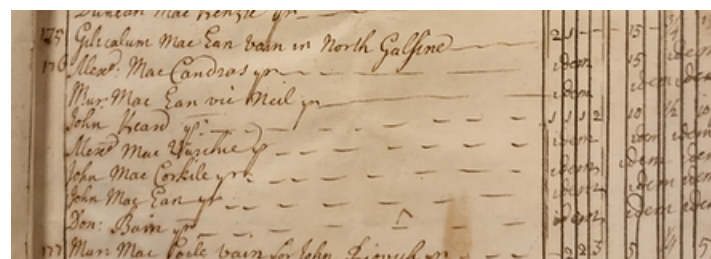 Duncan Mac Kenzie yr
175 Gilicalum Mac Ean vain in North Galsine 21 15
176 Alexr: Mac Candras yr idem 15 idem
Mur: Mac Ean vic Neil yr idem idem idem
John Heard yr 1112 10 ½ 10
Alexr Mac yr idem idem idem
John Mac Corkile yr idem idem idem
John Mac Ean yr idem idem idem
Don: Bain yr idem idem idem
177 Mur: Mac vain for John yr 223 5 ¼ 5